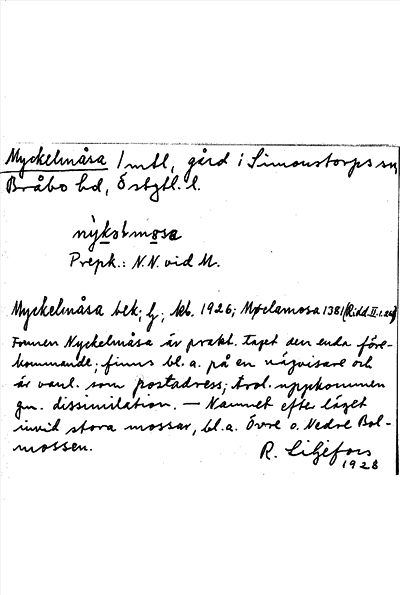 Myckelmåsa 1 mtl, gård i Simonstorps sn
Bråbo hd, Östgtl. l.
Prepk.: N.N. vid M.
Myckelmåsa bek; Jb; kb. 1926; Myclamosa 1381 (Ridd. II:1.
Formen Nyckelmåsa är prakt. taget den enda före-
kommande; finns bl.a. på en vägvisare och
är vanl. som postadress; trol. uppkommen
gm. dissimilation. — Namnet efter läget
invid stora mossar, bl.a. Övre o. Nedre Bol-
mossen.
R. Liljefors
1928